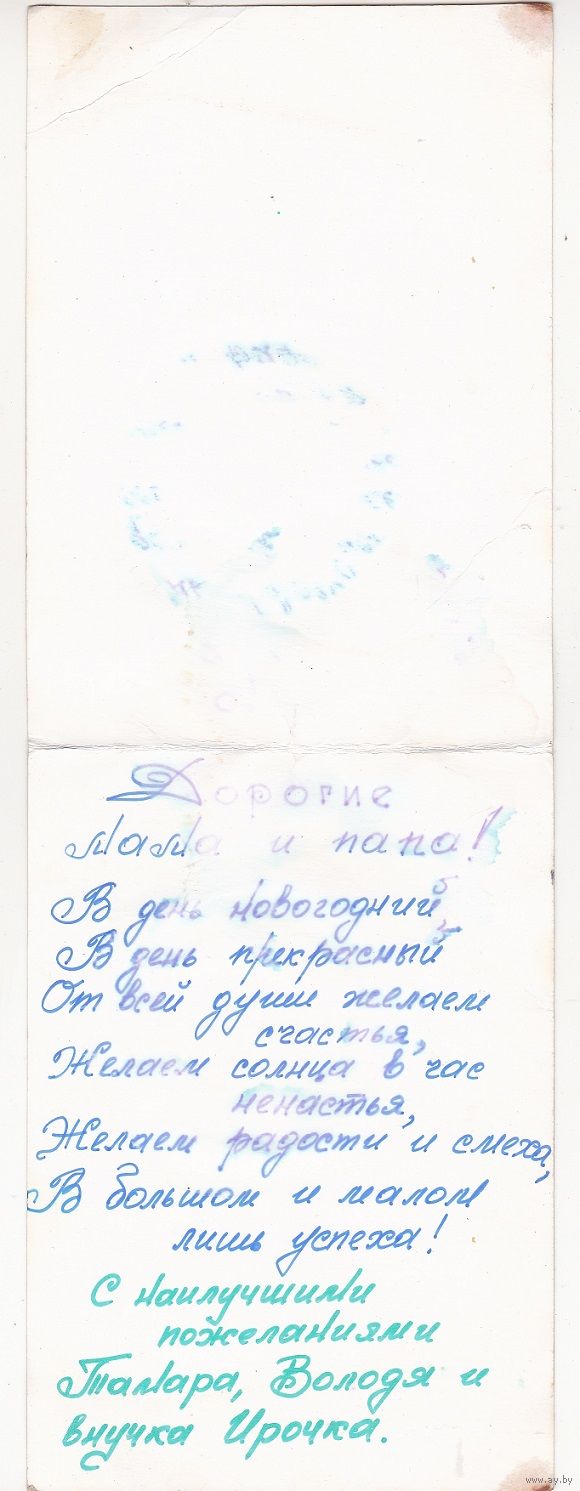 Дорогие
мама и папа!
В день новогодний,
В день прекрасный
От всей души желаем
счастья,
Желаем солнца в час
ненастья,
Желаем радости и смеха,
В большом и малом
лишь успеха!
С наилучшими
пожеланиями
Тамара, Володя и
внучка Ирочка.
www.ay.by